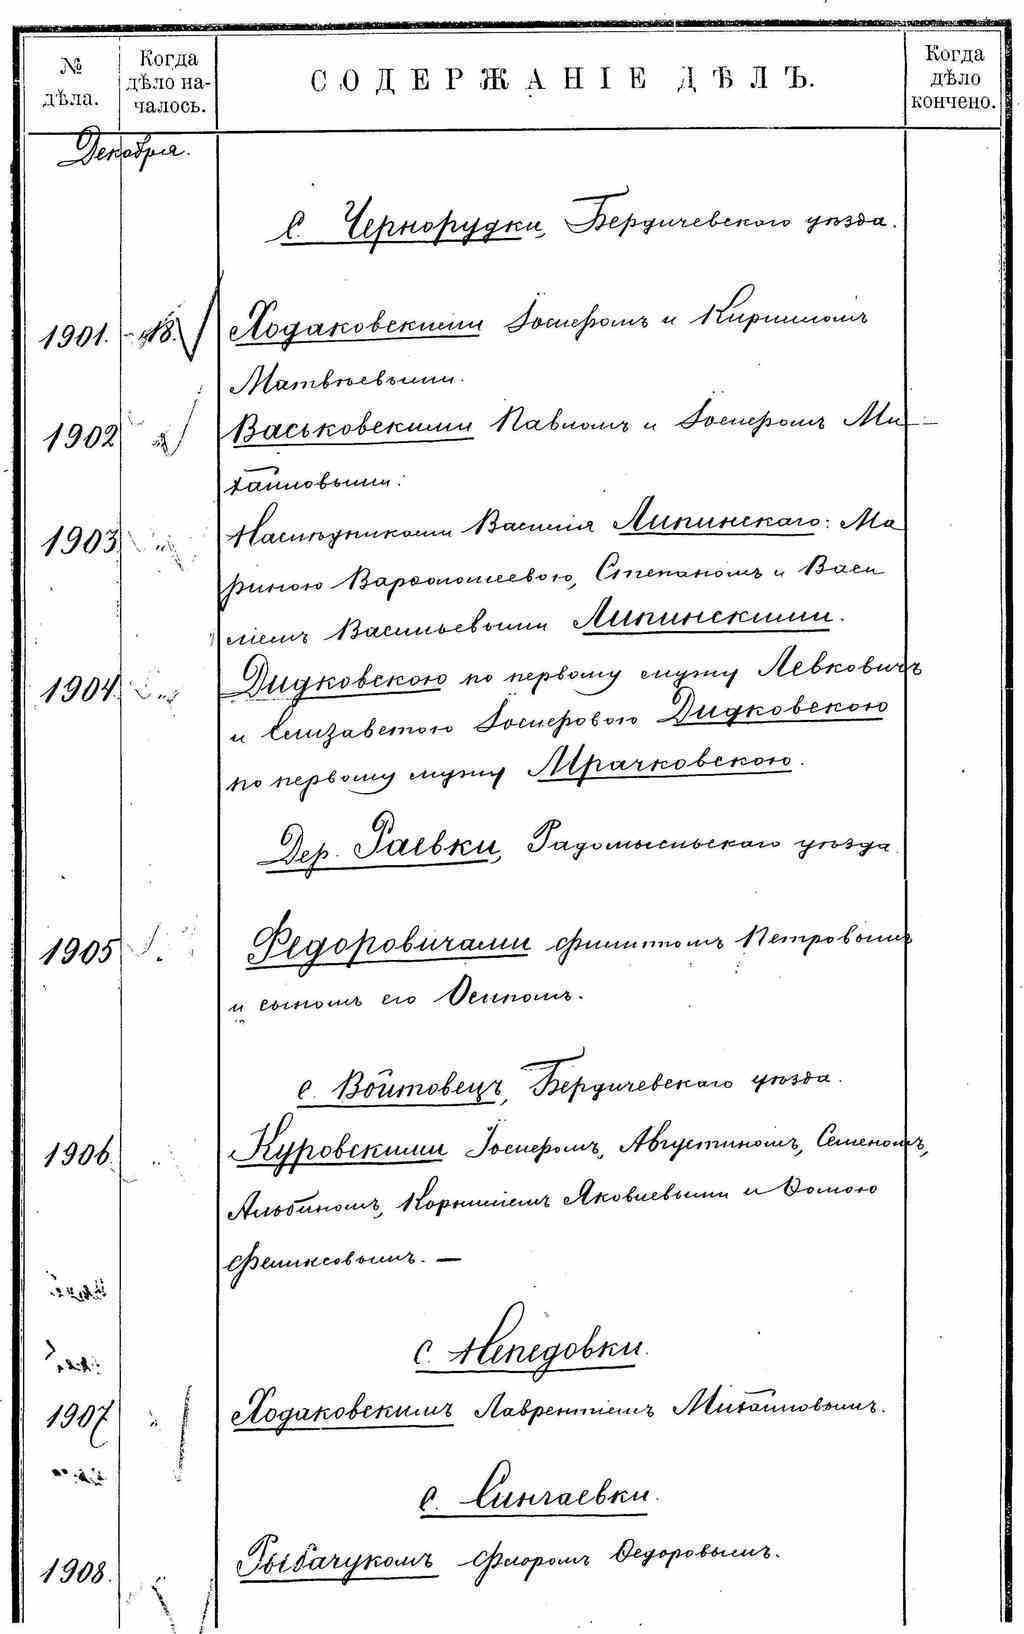 № дѣла.
Когда дѣло началось.
СОДЕРЖАНІЕ ДѢЛЪ.
Когда дѣло кончено.
Декабря.
с. Чернорудки, Бердичевского уѣзда.
1901. 18. Ходаковскими Іосифомъ и Кирилломъ
Матвѣевыми.
1902 Васьковскими Павломъ и Іосифомъ Ми-
хайловыми.
1903 Наслѣдниками Василія Липинскаго: Ма
риною Варфоломеевою, Степаномъ и Васи
ліемъ Васильевыми Липинскими.
1904. Дидковскою по первому мужу Левковичъ
и Елизаветою Іосифовою Дидковскою
по первому мужу Мрачковскою.
Дер. Раевки, Радомысльскаго уѣзда
1905 Федоровичами Филиппомъ Петровымъ
и сыномъ его Осипомъ.
с. Войтовецъ, Бердичевскаго уѣзда.
1906 Куровскими Іосифомъ, Августиномъ, Семеномъ,
Альбиномъ, Корниліемъ Яковлевыми и Ѳомою
Феликсовымъ. —
с. Непедовки.
1907 Ходаковскимъ Лаврентіемъ Михайловымъ.
с. Сингаевки.
1908. Рыбачукомъ Флоромъ Ѳедоровымъ.